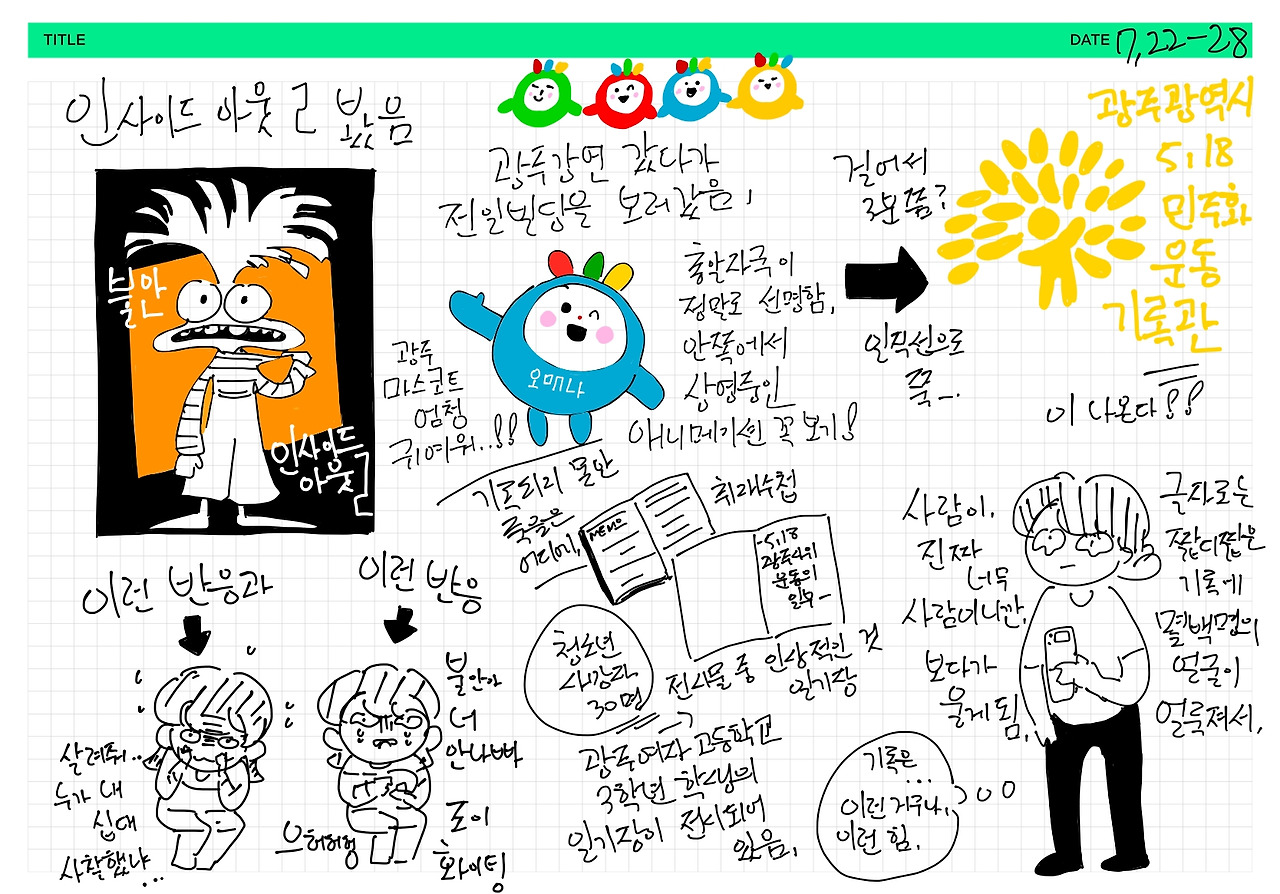 TITLE
DATE 7,22-28
인사이드 아웃 2 봤음
불안
인사이드
아웃 2
이런 반응과
이런 반응
살려줘..
누가 내
십대
사찰했냐
...
불안아
너
안나빠
조이
화이팅
으허허헝
광주강연 갔다가
전일빌딩을 보러갔음,
오매나
광주
마스코트
엄청
귀여워..!!
총알자국이
정말로 선명함,
안쪽에서
상영중인
애니메이션 꼭 보기!
걸어서
3분쯤?
일직선으로
쭉-.
광주광역시
5,18
민주화
운동
기록관
이 나온다!!
취재수첩
MEMO
-5.18
광주시위
운동의
일부-
청소년
사망자
30명
전시물 중 인상적인 것
일기장
광주여자고등학교
3학년 학생의
일기장이 전시되어
있음,
사람이,
진짜
너무
사람이니깐,
보다가
울게 됨,
글자로는
짧디짧은
기록에
몇백명의
얼굴이
얼룩져서,
기록은
...
이런 거구나,
이런 힘,